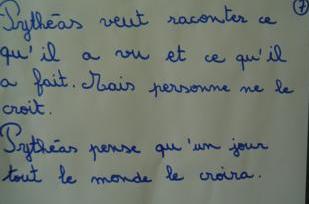 7
Pythéas veut raconter ce
qu'il a vu et ce qu'il
a fait. Mais personne ne le
croit.
Pythéas pense qu'un jour
tout le monde le croira.